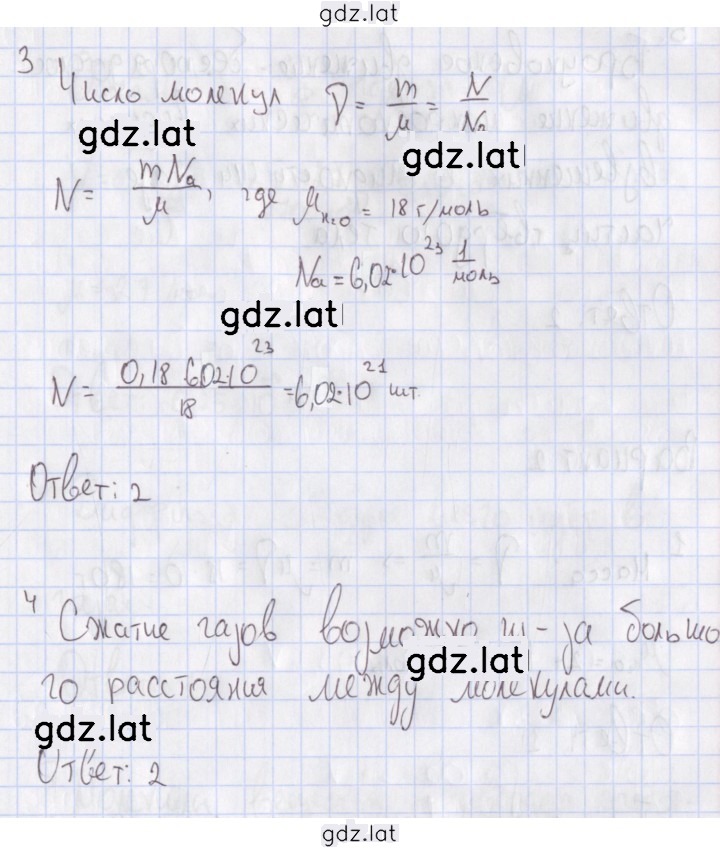 gdz.lat
3
Число молекул ν = m/μ = N/Na
gdz.lat
gdz.lat
N = mNa/μ, где μH2O = 18 г/моль
Na = 6,02·10^23 1/моль
gdz.lat
N = 0,18 6,02·10^23/18 = 6,02·10^21 шт.
Ответ: 2
4 Сжатие газов возможно из-за большо
gdz.lat
го расстояния между молекулами.
gdz.lat
Ответ: 2
gdz.lat